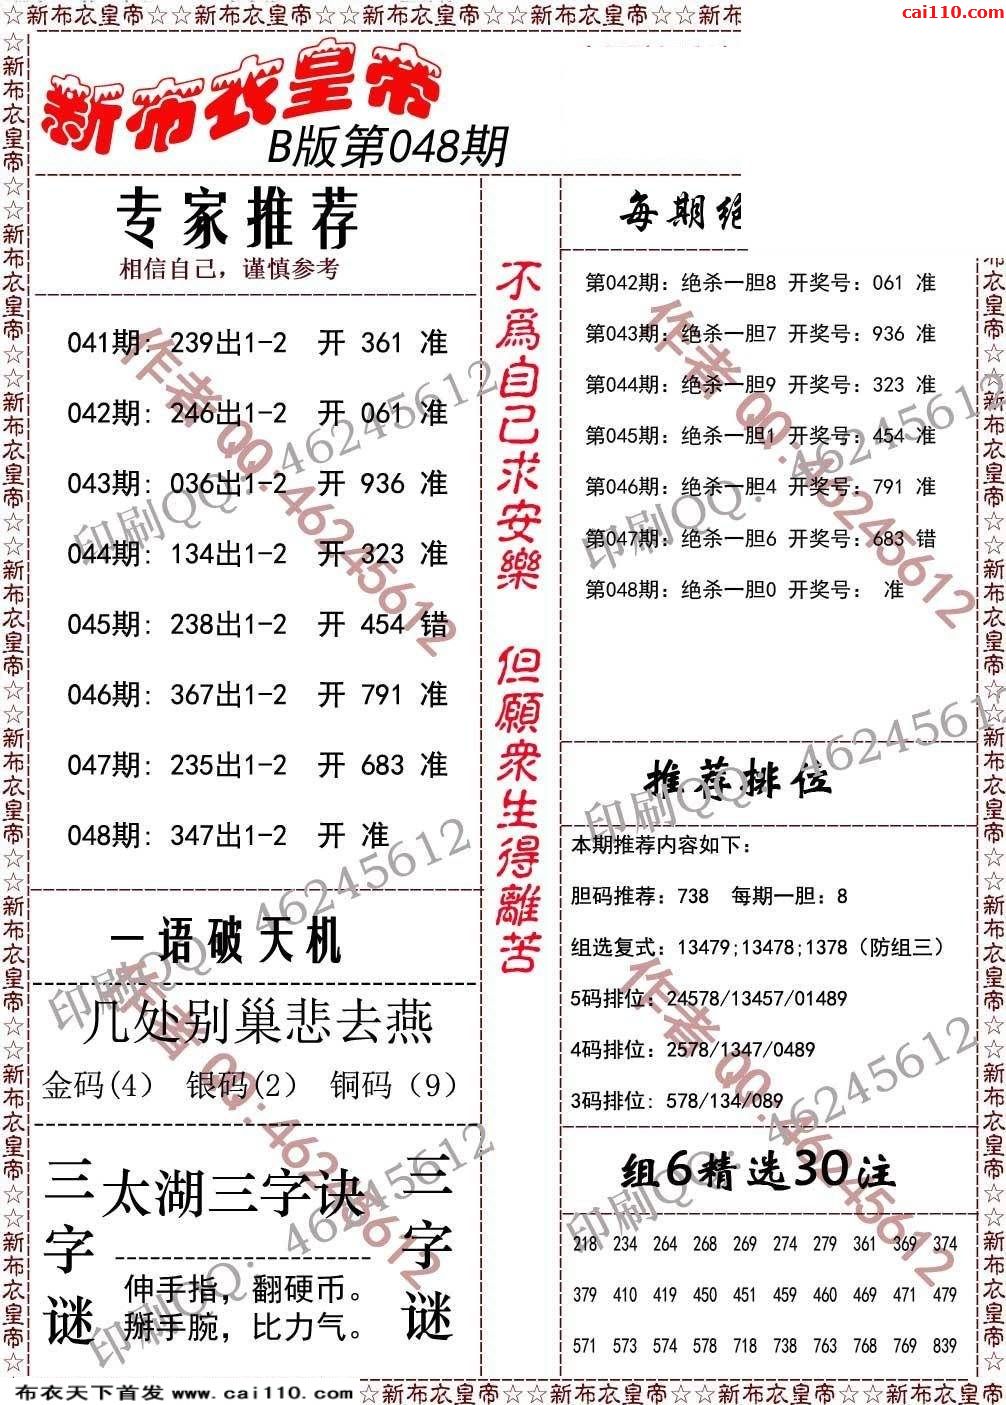 ☆新布衣皇帝☆☆新布衣皇帝☆☆新布衣皇帝☆☆新布衣皇帝☆☆新布
cai110.com
新布衣皇帝
B版第048期
专家推荐
相信自己，谨慎参考
041期: 239出1-2 开 361 准
042期: 246出1-2 开 061 准
043期: 036出1-2 开 936 准
044期: 134出1-2 开 323 准
045期: 238出1-2 开 454 错
046期: 367出1-2 开 791 准
047期: 235出1-2 开 683 准
048期: 347出1-2 开 准
一语破天机
几处别巢悲去燕
金码(4) 银码(2) 铜码（9）
三字谜
太湖三字诀
伸手指，翻硬币。
掰手腕，比力气。
三字谜
不爲自己求安樂 但願衆生得離苦
每期绝
第042期: 绝杀一胆8 开奖号: 061 准
第043期: 绝杀一胆7 开奖号: 936 准
第044期: 绝杀一胆9 开奖号: 323 准
第045期: 绝杀一胆1 开奖号: 454 准
第046期: 绝杀一胆4 开奖号: 791 准
第047期: 绝杀一胆6 开奖号: 683 错
第048期: 绝杀一胆0 开奖号: 准
推荐排位
本期推荐内容如下:
胆码推荐: 738 每期一胆: 8
组选复式: 13479;13478;1378（防组三）
5码排位: 24578/13457/01489
4码排位: 2578/1347/0489
3码排位: 578/134/089
组6精选30注
218 234 264 268 269 274 279 361 369 374
379 410 419 450 451 459 460 469 471 479
571 573 574 578 718 738 763 768 769 839
作者QQ:46245612
印刷QQ: 46245612
布衣天下首发 www.cai110.com
☆新布衣皇帝☆☆新布衣皇帝☆☆新布衣皇帝☆☆新布衣皇帝☆